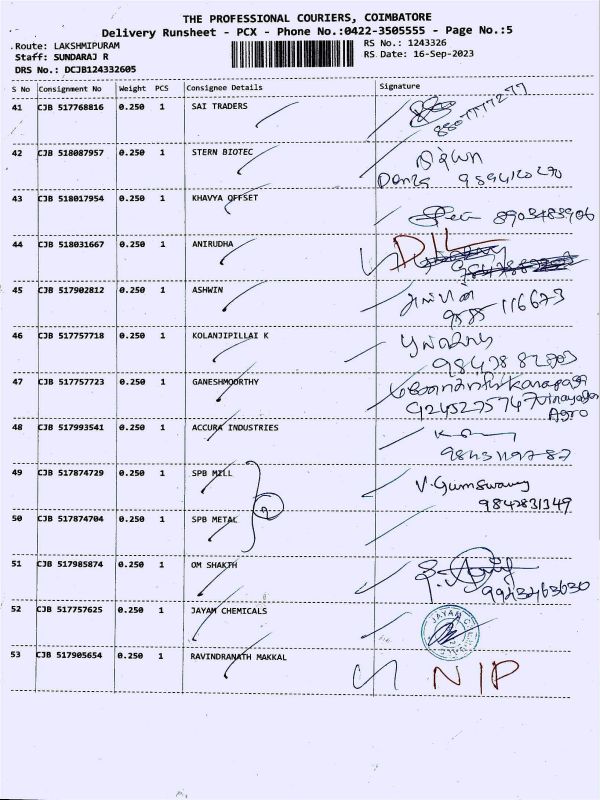 THE PROFESSIONAL COURIERS, COIMBATORE
Delivery Runsheet - PCX - Phone No.:0422-3505555 - Page No.:5
Route: LAKSHMIPURAM RS No.: 1243326
Staff: SUNDARAJ R RS Date: 16-Sep-2023
DRS No.: DCJB124332605
S No Consignment No Weight PCS Consignee Details Signature
41 CJB 517768816 0.250 1 SAI TRADERS
8807777277
42 CJB 518087957 0.250 1 STERN BIOTEC
9894120290
43 CJB 518017954 0.250 1 KHAVYA OFFSET
8903483906
44 CJB 518031667 0.250 1 ANIRUDHA D/L
45 CJB 517902812 0.250 1 ASHWIN
116673
46 CJB 517757718 0.250 1 KOLANJIPILLAI K
47 CJB 517757723 0.250 1 GANESHMOORTHY
Agro
48 CJB 517993541 0.250 1 ACCURA INDUSTRIES
49 CJB 517874729 0.250 1 SPB MILL
9842831349
50 CJB 517874704 0.250 1 SPB METAL 2
51 CJB 517985874 0.250 1 OM SHAKTH
9943263630
52 CJB 517757625 0.250 1 JAYAM CHEMICALS
JAYAM
53 CJB 517905654 0.250 1 RAVINDRANATH MAKKAL N/P